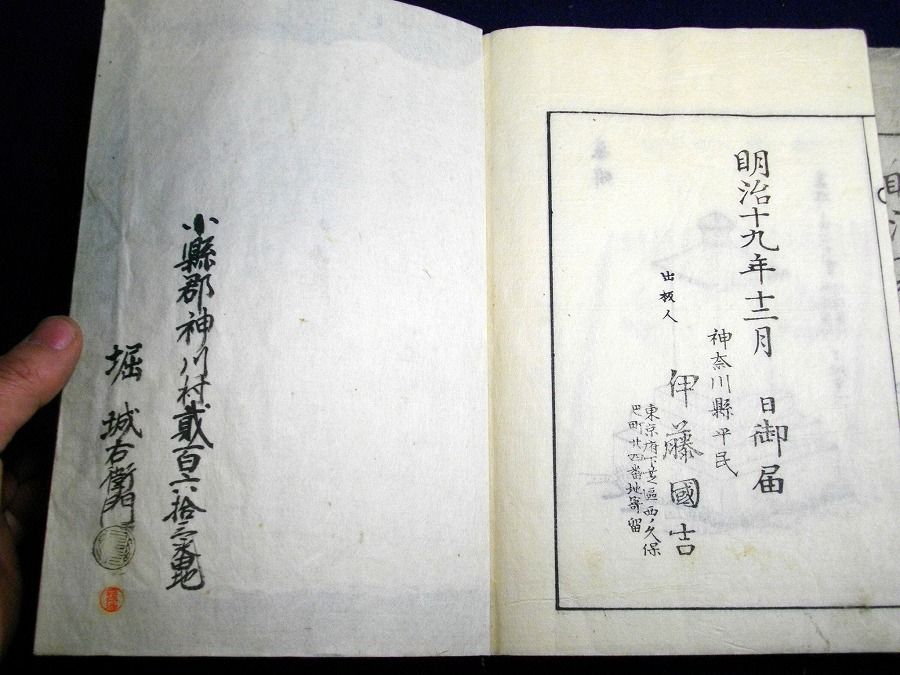 明治十九年十二月 日御届
神奈川縣平民
出板人 伊藤國吉
東京府下芝區西ノ久保
巴町廿四番地寄留
小縣郡神川村貳百六拾三番地
堀 城右衛門